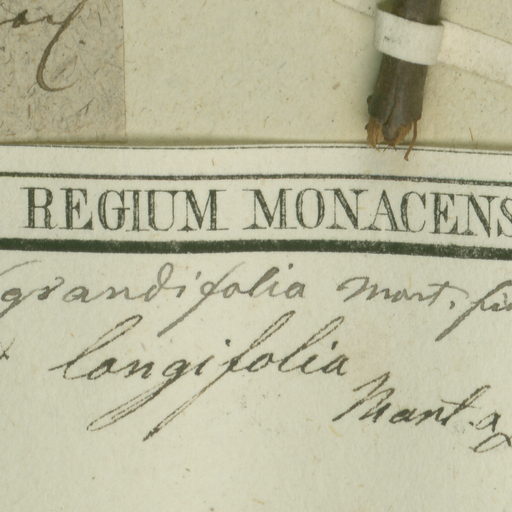 REGIUM MONACENS
grandifolia Mart.
longifolia
Mart.